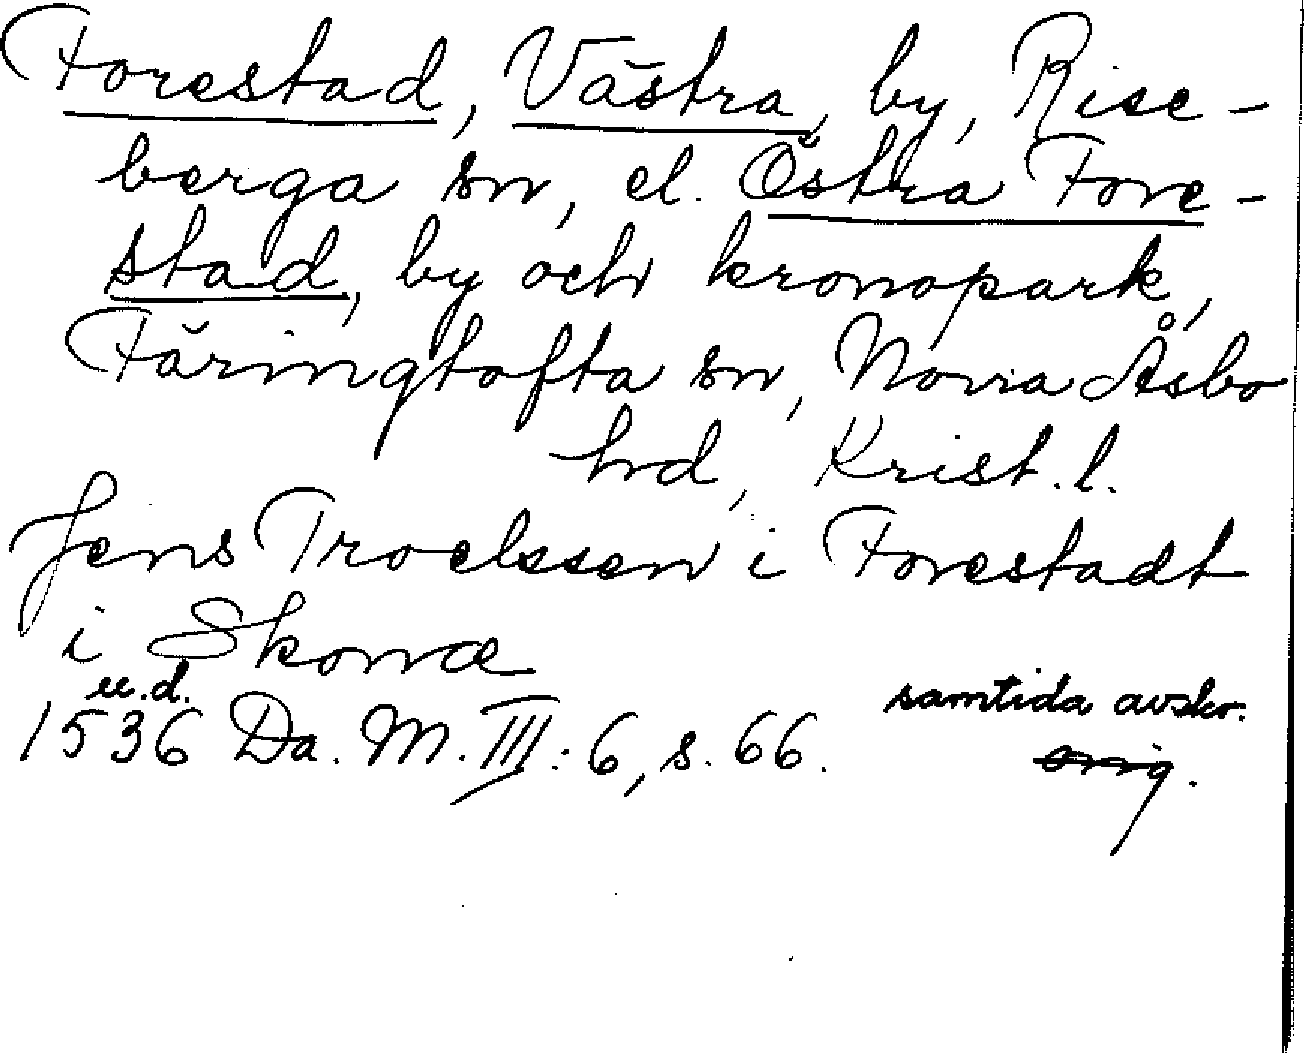 Forestad, Västra, by, Rise-
berga sn, el. Östra Fore-
stad, by och kronopark,
Färingtofta sn, Norra Åsbo
hd, Krist. l.
Jens Troelssen i Forestadt
i Skonæ
u.d.
samtida avskr.
1536 Da. M. III: 6, s. 66. orig.